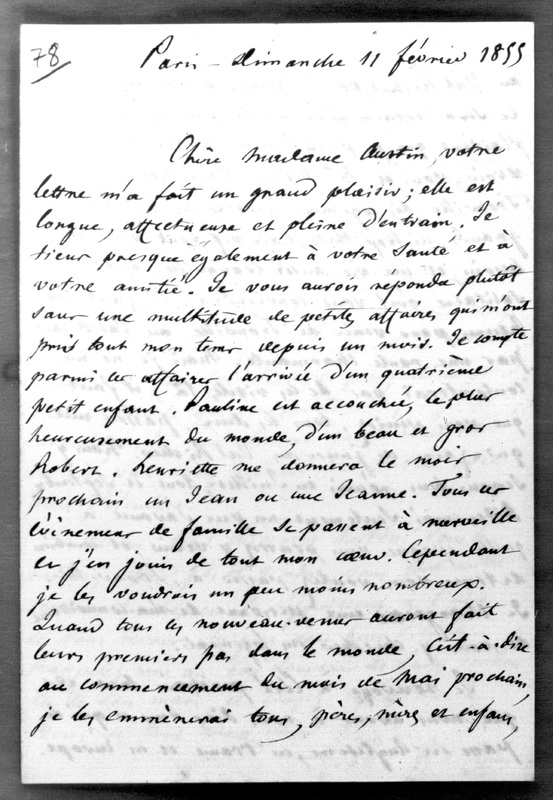 78
Paris - dimanche 11 février 1855
Chère madame Austin, votre
lettre m'a fait un grand plaisir; elle est
longue, affectueuse et pleine d'entrain. Je
tiens presque également à votre santé et à
votre amitié. Je vous aurois répondu plutôt
sans une multitude de petites affaires qui m'ont
pris tout mon tems depuis un mois. Je compte
parmi ces affaires l'arrivée d'un quatrième
petit enfant. Pauline est accouchée, le plus
heureusement du monde, d'un beau et gros
Robert. Henriette me donnera le mois
prochain un Jean ou une Jeanne. Tous ces
évènemens de famille se passent à merveille
et j'en jouis de tout mon cœur. Cependant
je les voudrois un peu moins nombreux.
Quand tous ces nouveau-venus auront fait
leurs premiers pas dans le monde, c'est-à-dire
au commencement du mois de Mai prochain,
je les emmènerai tous, pères, mères et enfans,